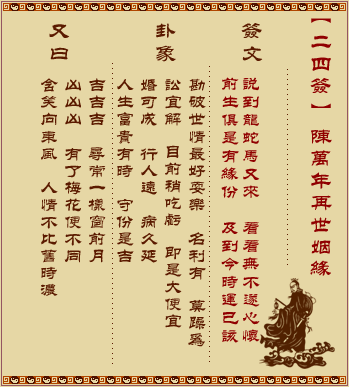 【二四簽】 陳萬年再世姻緣
簽文
說到龍蛇馬又來 看看無不遂心懷
前生俱是有緣份 及到今時運已該
卦象
勘破世情最好耍樂 名利有 莫躁為
訟宜解 目前稍吃虧 即是大便宜
婚可成 行人遠 病久延
人生富貴有時 守份是吉
又曰
吉吉吉 尋常一樣窗前月
凶凶凶 有了梅花便不同
含笑向東風 人情不比舊時濃